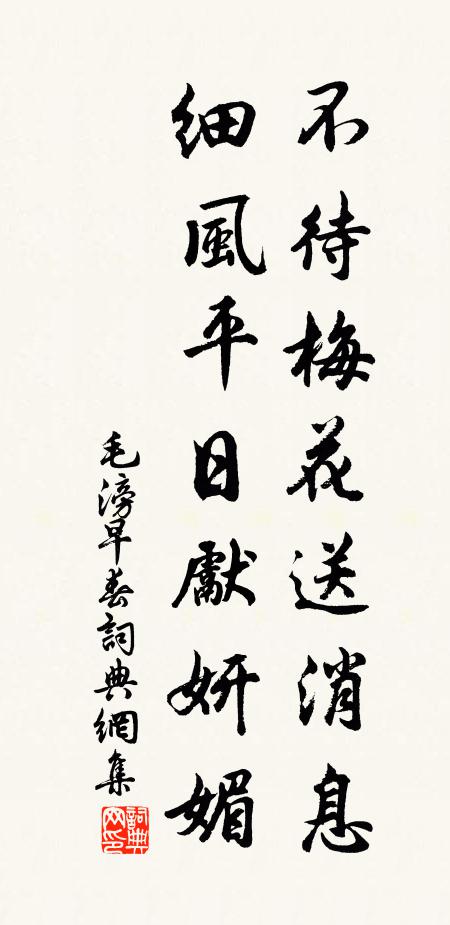 不待梅花送消息
細風平日獻妍媚
毛滂早春詞典網集
詞典网印